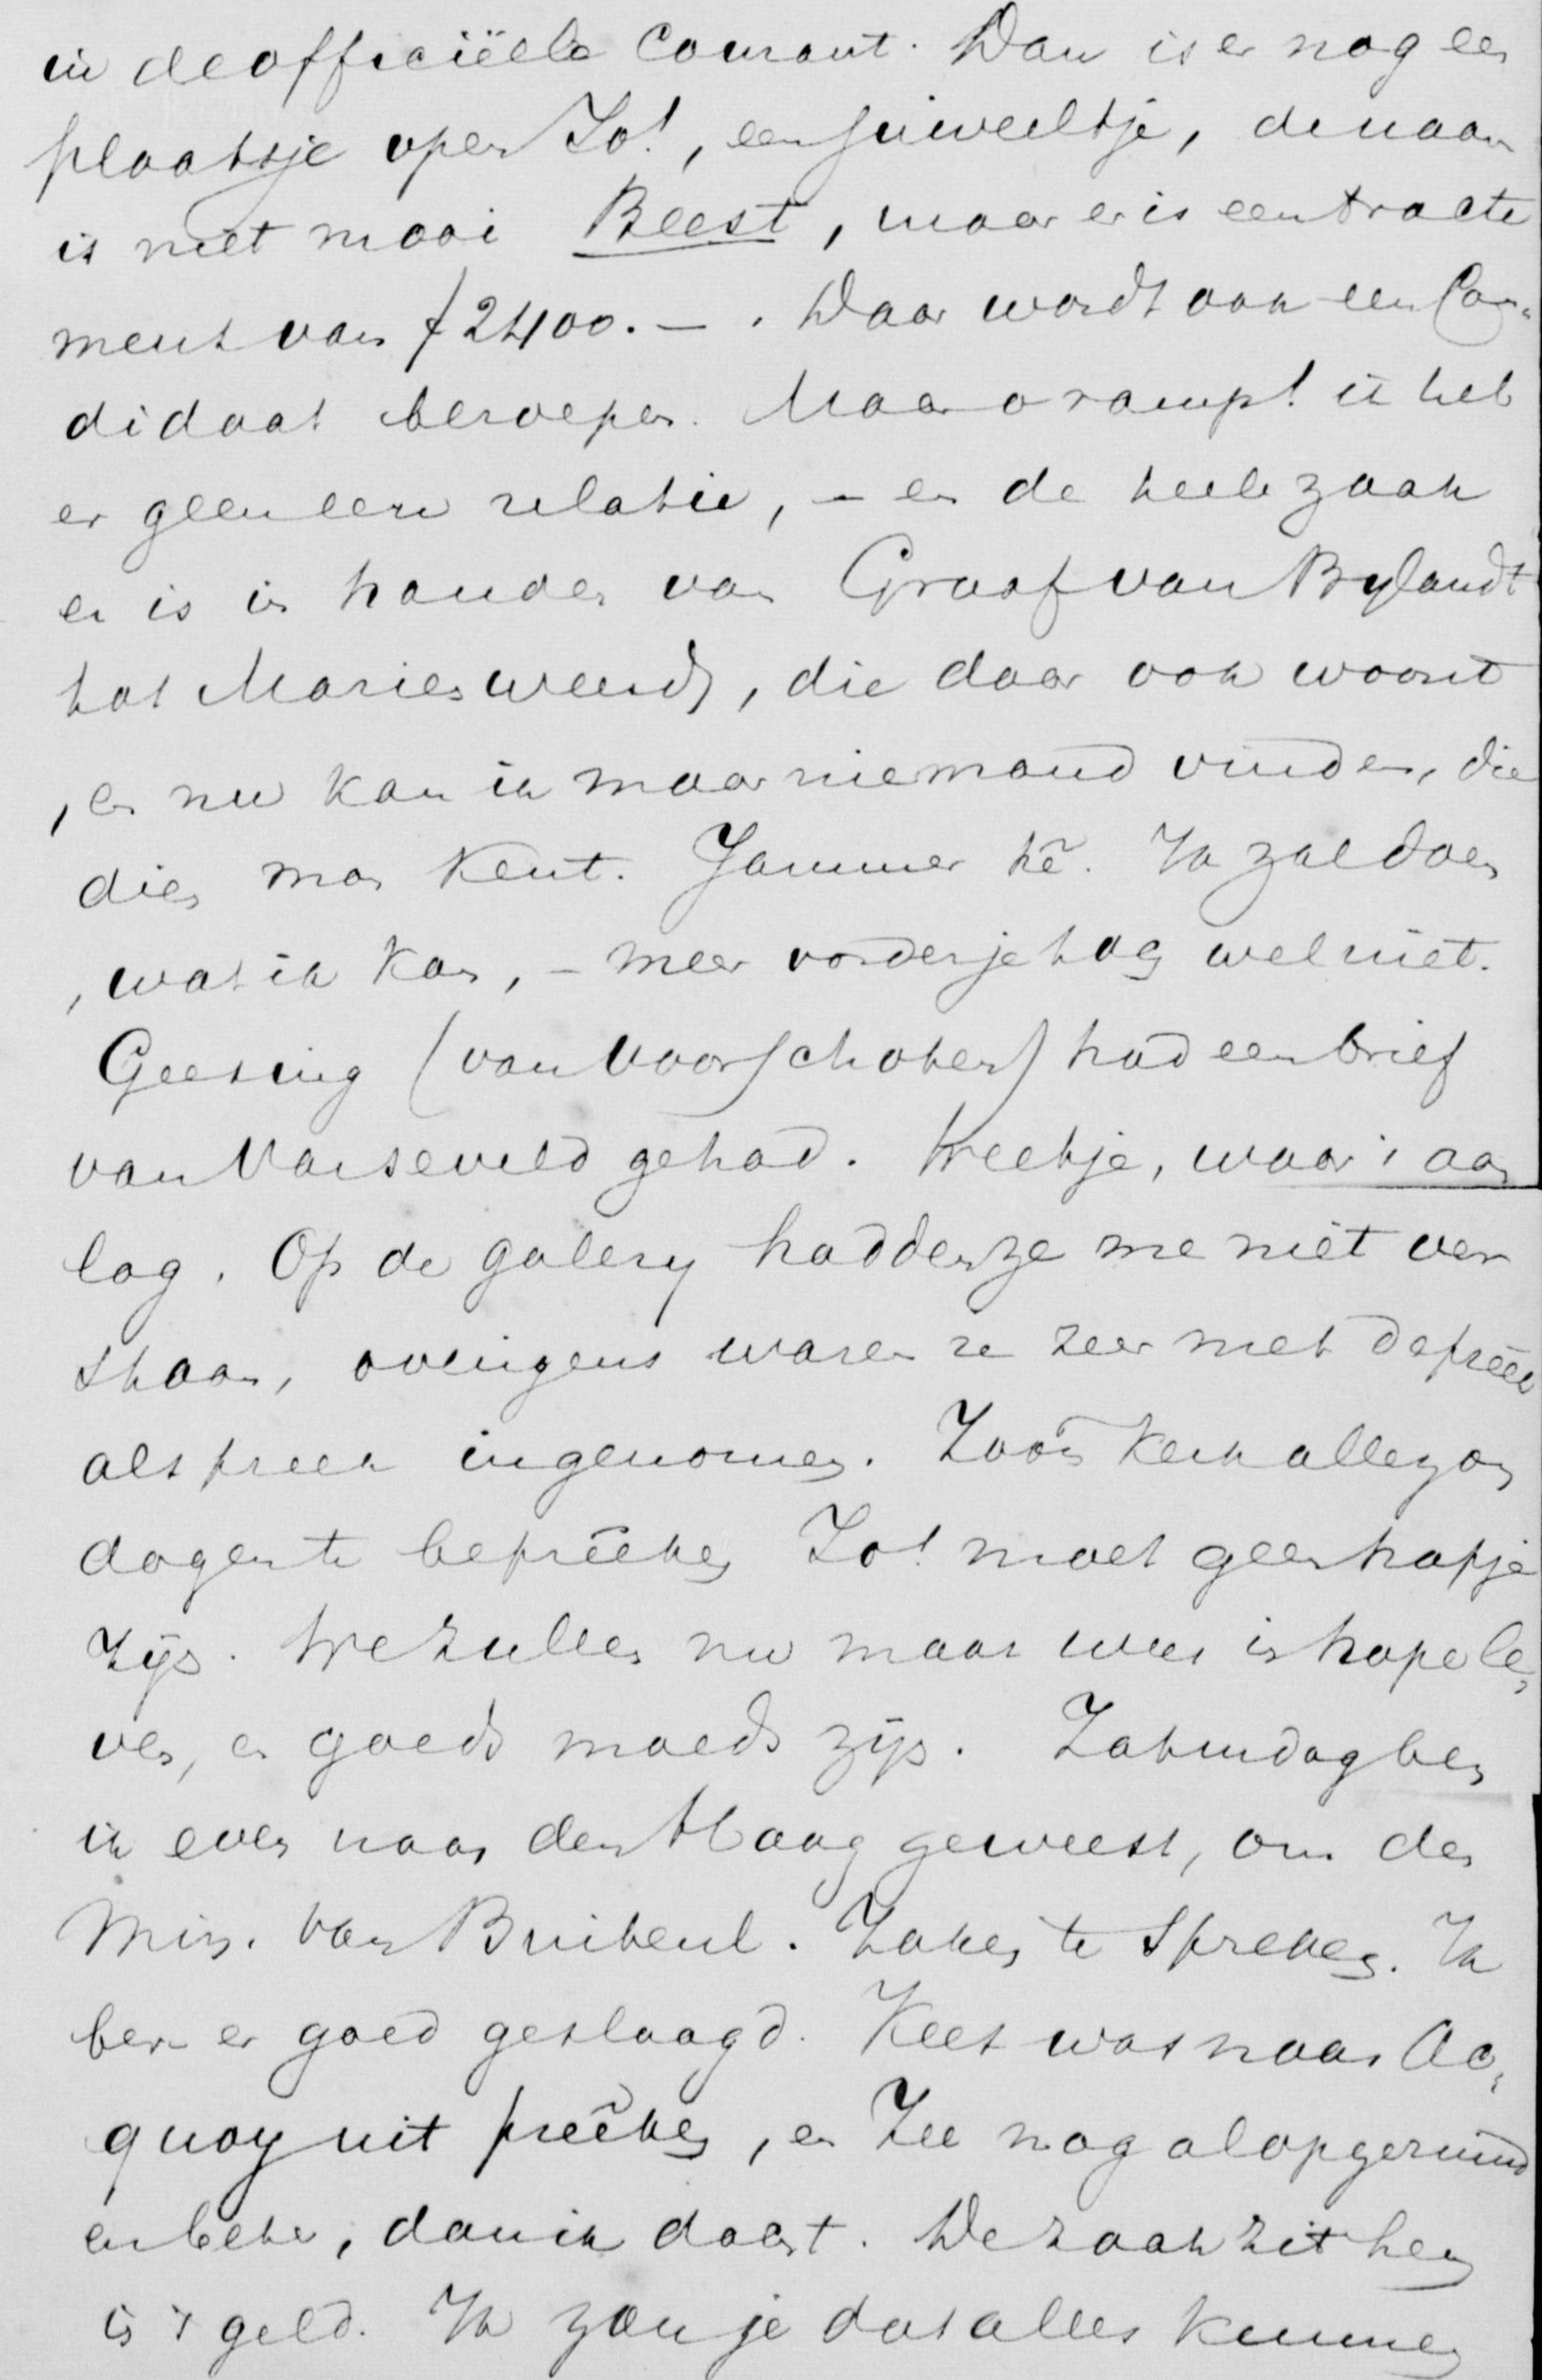 in de officiëele Courant. Dan is er nog een
plaatsje open Jo!, een juweeltje, de naam
is niet mooi Beest, maar er is een tracte
ment van ƒ 2400.— . Daar wordt ook een Can-
didaat beroepen. Maar o ramp! ik heb
er geen eene relatie, – en de heele zaak
er is in handen van Graaf van Bylandt
tot Marienweerdt, die daar ook woont
, en nu kan ik maar niemand vinden, die
dien man kent. Jammer hè. Ik zal doen
, wat ik kan, – meer vorder je tog wel niet.
Geesing (van Voorschoten) had een brief
van Varseveld gehad. Weetje, waar 't aan
lag. Op de galery hadden ze me niet ver
staan, overigens waren ze zeer met de preek
als preek ingenomen. Zoo'n kerk alle zon
dagen te bepreeken Jo! moet geen hapje
zijn. We zullen nu maar weer in hope le-
ven, en goeds moeds zijn. Zaturdag ben
ik even naar den Haag geweest, om den
Min. van Buitenl. Zaken te spreken. Ik
ben er goed geslaagd. Kees was naar Ac-
quoy uit preeken, en Zee nog al opgeruimd
en beter, dan ik dacht. De zaak zit hem
in 't geld. Ik zou je dat alles kunnen